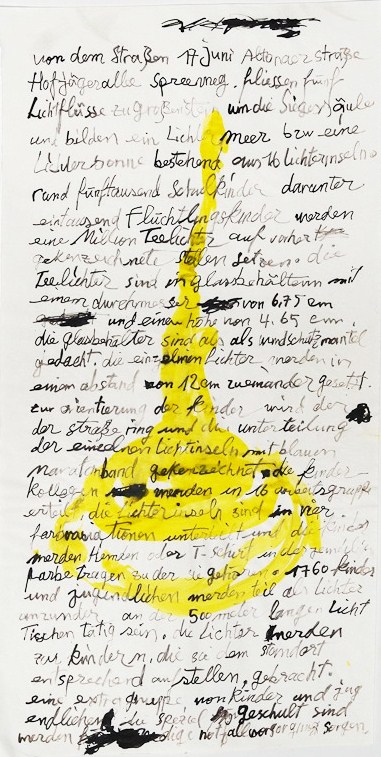 von dem Straßen 17 Juni Altonaer Straße
Hofjägerallee Spreeweg. fliessen fünf
Lichtflüsse zu großen um die Siegessäule
und bilden ein Lichtermeer bzw eine
bestehend aus 16 lichterinseln
rund fünftausend Schulkinder darunter
eintausend Flüchtlingskinder werden
eine Million Teelichter auf vorher
gekenzeichnete stelen setzen. die
Teelichter sind in glassbehältern mit
einem durchmesser von 6,75 cm
und einen höhe von 4,65 cm.
die glasbehälter sind als als windschutzmantel
gedacht. die einzelnen Lichter werden in
einem abstand von 12 cm zueinander gesetzt.
zur orientierung der kinder wird der
der straße ring und die unterteilung
der einzelnen lichtinseln mit blauem
gekenzeichnet. die kinder
kollegen werden in 16 arbeitsgruppen
erteilt. die Lichterinseln sind in vier.
und die kinder
werden Hemden oder T-schirt in der
farbe tragen zu der sie gehören. 1760 kinder
und jugendlichen werden teil der lichter
an der 500 meter langen Licht
Tischen tätig sein. die lichter werden
zu kindern, die zu dem standort
ensprechend aufstellen, gebracht.
eine extra gruppe von kinder und jug
endlichen die geschult sind
werden notfallversorgung sorgen.